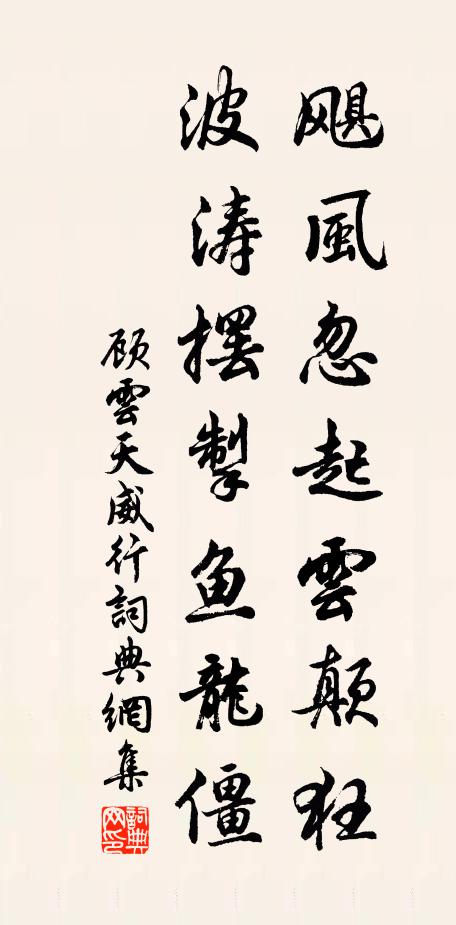 飓風忽起雲颠狂
波涛摆掣鱼龍僵
顾雲天威行詞典網集
詞典网印